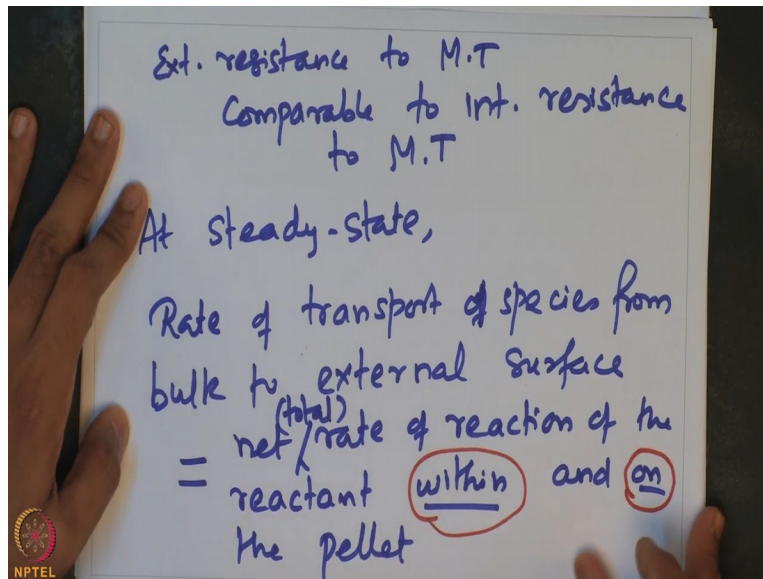 Ext. resistance to M.T
Comparable to int. resistance
to M.T
At steady-state,
Rate of transport of species from
bulk to external surface
(total)
= net rate of reaction of the
reactant within and on
the pellet
NPTEL